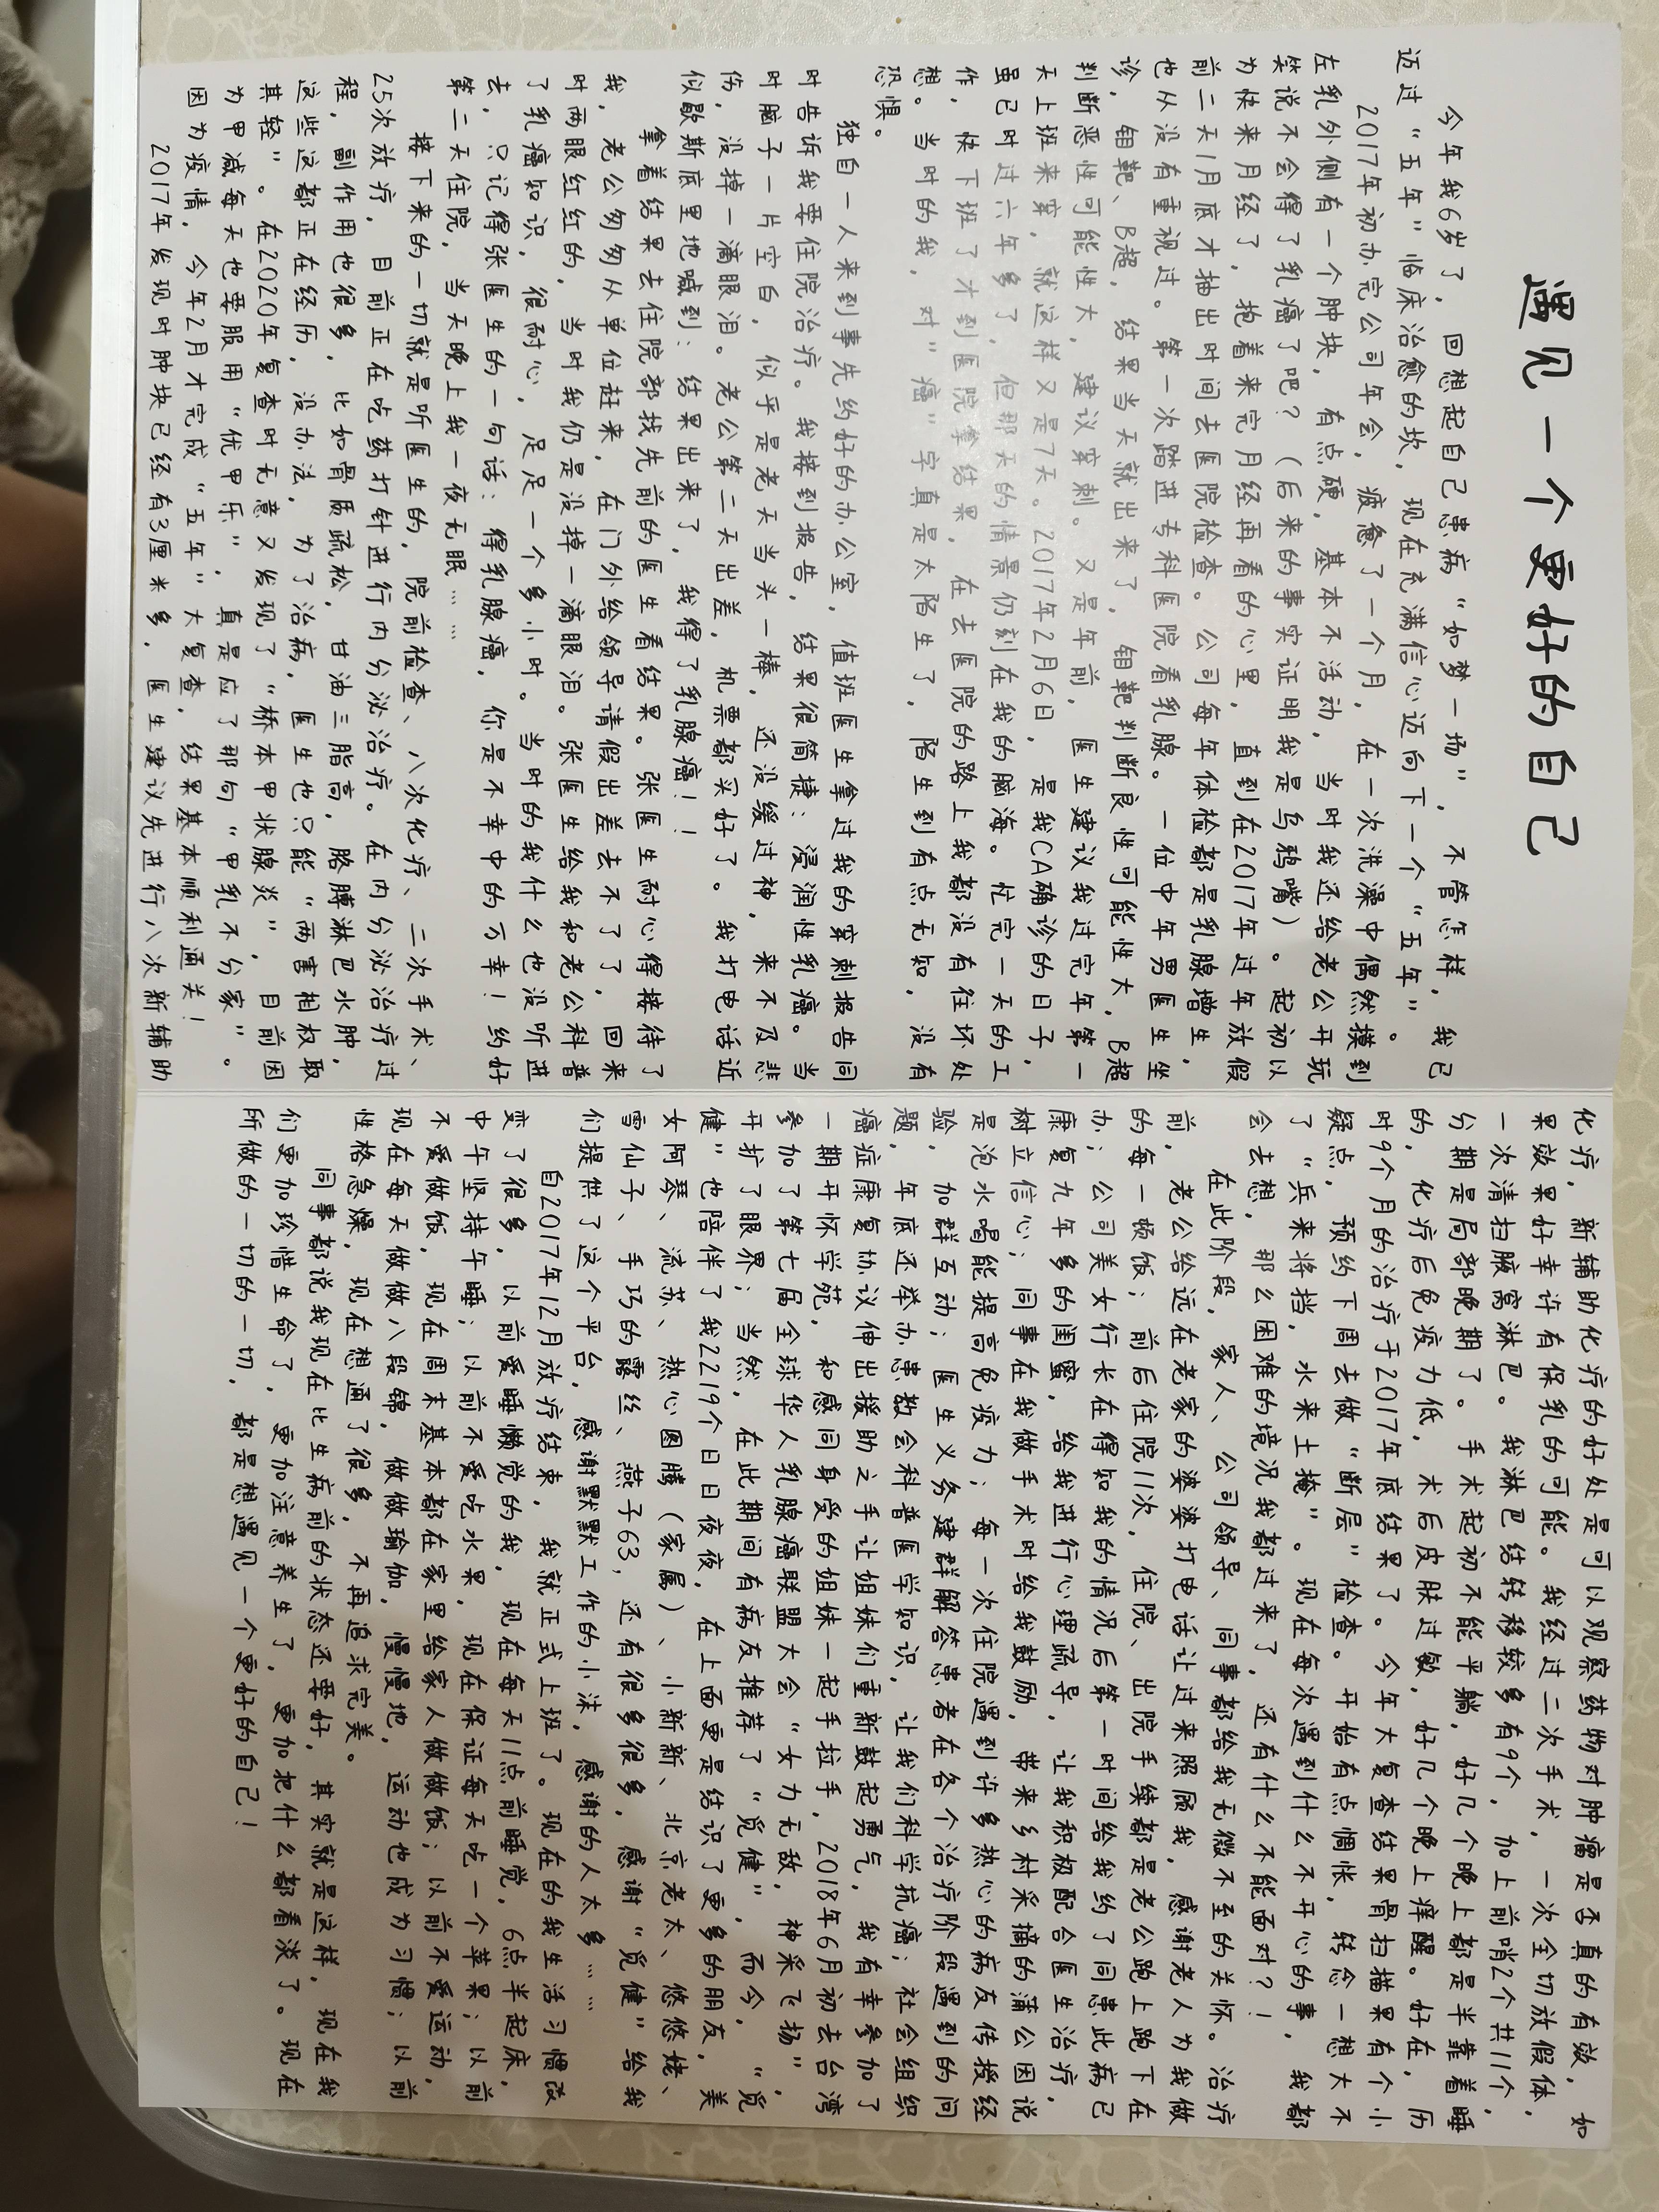 遇见一个更好的自己
今年我6岁了，回想起自己患病“如梦一场”，不管怎样，我已
迈过“五年”临床治愈的坎，现在充满信心迈向下一个“五年”。
2017年初办完公司年会，疲惫了一个月，在一次洗澡中偶然摸到
左乳外侧有一个肿块，有点硬，基本不活动，当时我还给老公开玩
笑说不会得了乳癌了吧？（后来的事实证明我是乌鸦嘴）。起初以
为快来月经了，抱着来完月经再看的心里，直到在2017年过年放假
前二天1月底才抽出时间去医院检查。公司每年体检都是乳腺增生，
也从没有重视过。第一次踏进专科医院看乳腺。一位中年男医生坐
诊，钼靶、B超，结果当天就出来了，钼靶判断良性可能性大，B超
判断恶性可能性大，建议穿刺。又是年前，医生建议我过完年第一
天上班来穿，就这样又是7天。2017年2月6日，是我CA确诊的日子，
虽已时过六年多了，但那天的情景仍刻在我的脑海。忙完一天的工
作，快下班了才到医院拿结果，在去医院的路上我都没有往坏处
想。当时的我，对“癌”字真是太陌生了，陌生到有点无知，没有
恐惧。
独自一人来到事先约好的办公室，值班医生拿过我的穿刺报告同
时告诉我要住院治疗。我接到报告，结果很简捷：浸润性乳癌。当
时脑子一片空白，似乎是老天当头一棒，还没缓过神，来不及悲
伤，没掉一滴眼泪。老公第二天出差，机票都买好了。我打电话近
似歇斯底里地喊到：结果出来了，我得了乳腺癌！！
拿着结果去住院部找先前的医生看结果。张医生耐心得接待了
我，老公匆匆从单位赶来，在门外给领导请假出差去不了了，回来
时两眼红红的，当时我仍是没掉一滴眼泪。张医生给我和老公科普
了乳癌知识，很耐心，足足一个多小时。当时的我什么也没听进
去，只记得张医生的一句话：得乳腺癌，你是不幸中的万幸！约好
第二天住院，当天晚上我一夜无眠……
接下来的一切就是听医生的，院前检查、八次化疗、二次手术、
25次放疗，目前正在吃药打针进行内分泌治疗。在内分泌治疗过
程，副作用也很多，比如骨质疏松，甘油三脂高，胳膊淋巴水肿，
这些这都正在经历，没办法，为了治病，医生也只能“两害相权取
其轻”。在2020年复查时无意又发现了“桥本甲状腺炎”，目前因
为甲减每天也要服用“优甲乐”，真是应了那句“甲乳不分家”。
因为疫情，今年2月才完成“五年”大复查，结果基本顺利通关！
2017年发现时肿块已经有3厘米多，医生建议先进行八次新辅助
化疗，新辅助化疗的好处是可以观察药物对肿瘤是否真的有效，如
果效果好幸许有保乳的可能。我经过二次手术，一次全切放假体，
一次清扫腋窝淋巴。我淋巴结转移较多有9个，加上前哨2个共11个，
分期是局部晚期了。手术起初不能平躺，好几个晚上都是半靠着睡
的，化疗后免疫力低，术后皮肤过敏，好几个晚上痒醒。好在，历
时9个月的治疗于2017年底结果了。今年大复查结果骨扫描果有个小
疑点，预约下周去做“断层”检查。开始有点惆怅，转念一想大不
了“兵来将挡，水来土掩”。现在每次遇到什么不开心的事，我都
会去想，那么困难的境况我都过来了，还有什么不能面对？！
在此阶段，家人、公司领导、同事都给我无微不至的关怀。治疗
前，老公给远在老家的婆婆打电话让过来照顾我，感谢老人为我做
的每一顿饭；前后住院11次，住院、出院手续都是老公跑上跑下在
办；公司美女行长在得知我的情况后第一时间给我约了同患此病已
康复九年多的闺蜜，给我进行心理疏导，让我积极配合医生治疗，
树立信心；同事在我做手术时给我鼓励，带来乡村采摘的蒲公因说
是泡水喝能提高免疫力；每一次住院遇到许多热心的病友传授经
验，加群互动；医生义务建群解答患者在各个治疗阶段遇到的问
题，年底还举办患教会科普医学知识，让我们科学抗癌；社会组织
癌症康复协议伸出援助之手让姐妹们重新鼓起勇气，我有幸参加了
一期开怀学苑，和感同身受的姐妹一起手拉手，2018年6月初去台湾
参加了第七届全球华人乳腺癌联盟大会“女力无敌，神采飞扬”，
开扩了眼界；当然，在此期间有病友推荐了“觅健”，而今，“觅
健”也陪伴了我2219个日日夜夜，在上面更是结识了更多的朋友，美
女阿琴、流苏、热心图腾（家属）、小新新、北京老太、悠悠姥、
雪仙子、手巧的露丝、燕子63，还有很多很多，感谢“觅健”给我
们提供了这个平台，感谢默默工作的小沫，感谢的人太多……
自2017年12月放疗结束，我就正式上班了。现在的我生活习惯改
变了很多，以前爱睡懒觉的我，现在每天11点前睡觉，6点半起床，
中午坚持午睡；以前不爱吃水果，现在保证每天吃一个苹果；以前
不爱做饭，现在周末基本都在家里给家人做做饭；以前不爱运动，
现在每天做做八段锦，做做瑜伽，慢慢地，运动也成为习惯；以前
性格急燥，现在想通了很多，不再追求完美。
同事都说我现在比生病前的状态还要好，其实就是这样，现在我
们更加珍惜生命了，更加注意养生了，更加把什么都看淡了。现在
所做的一切的一切，都是想遇见一个更好的自己！